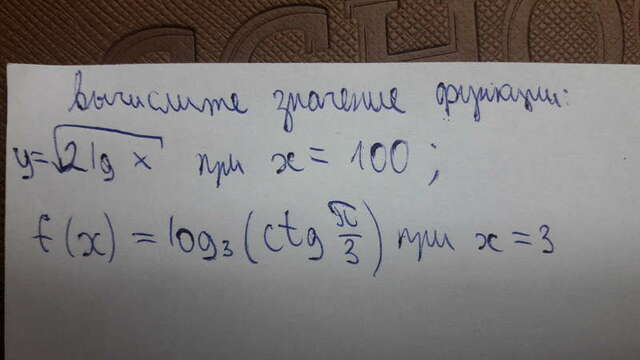 вычислите значение функции:
y=√2lg x при x = 100 ;
f(x) = log₃(ctg π/3) при x = 3